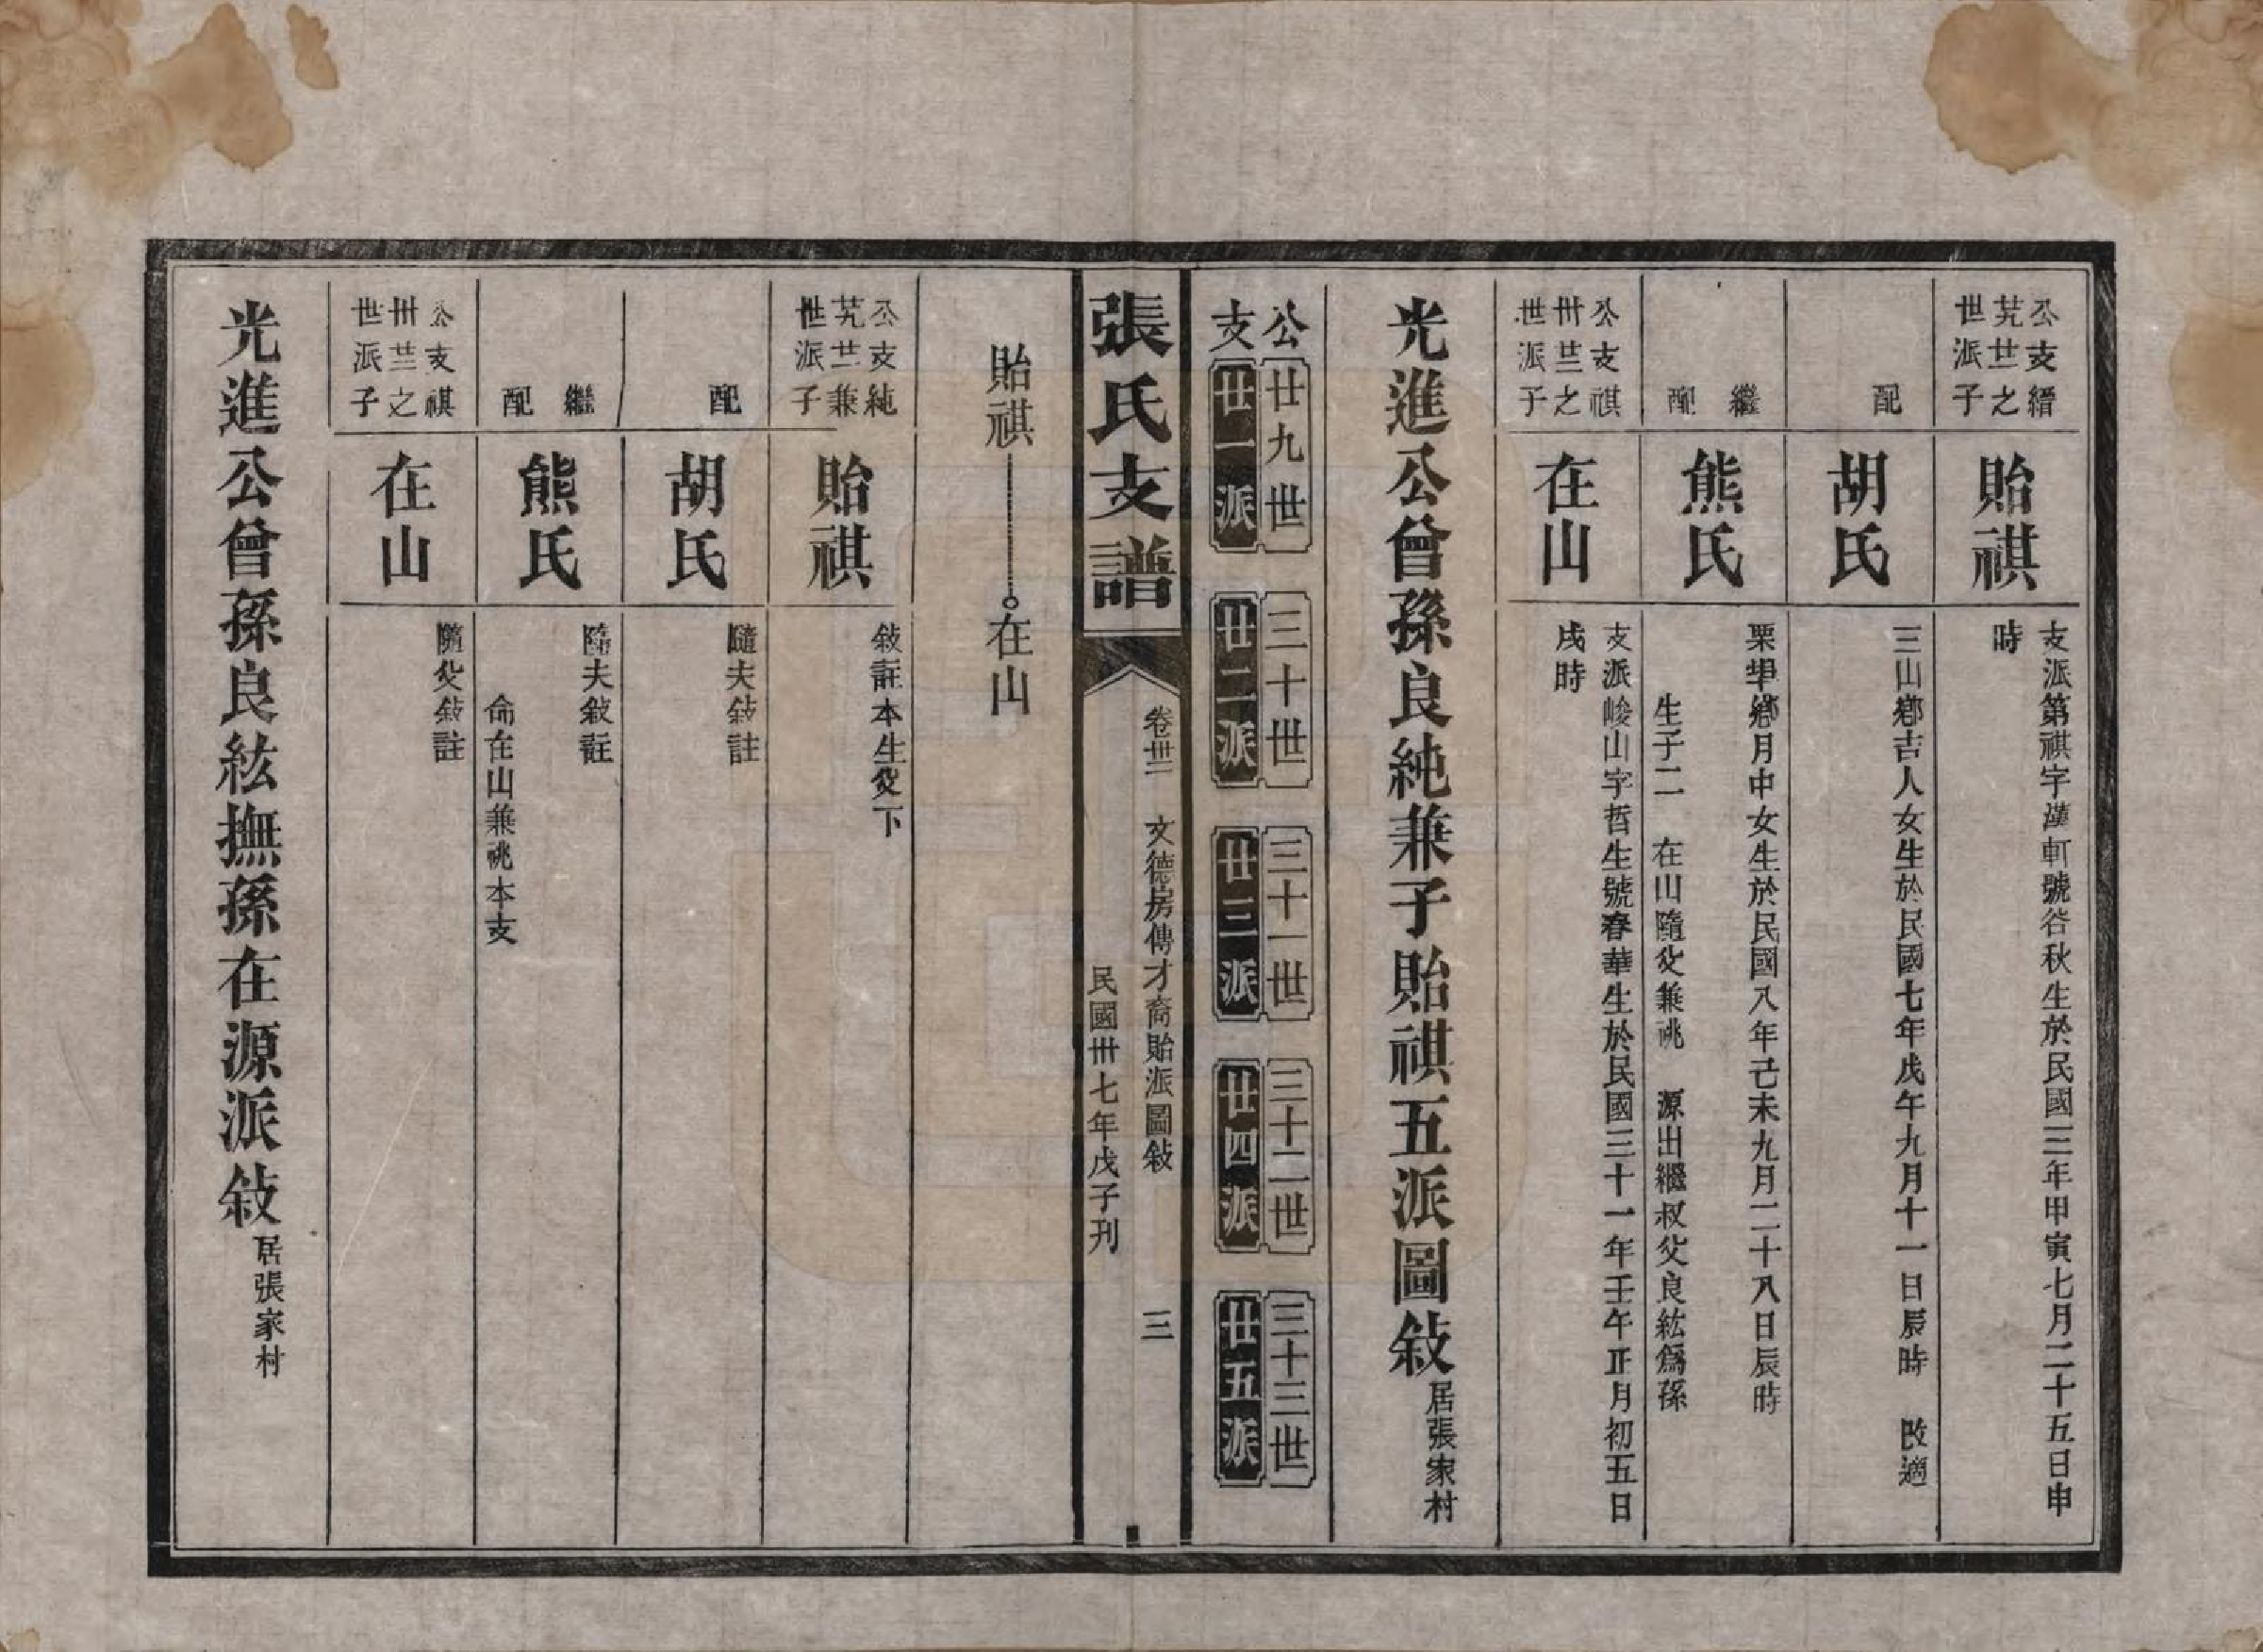 公支縉
艽廿之
世派子
貽祺
支派第祺字漢軒號谷秋生於民國三年甲寅七月二十五日申
時
配
胡氏
三山鄉吉人女生於民國七年戊午九月十一日辰時 改適
繼配
熊氏
栗𡶶鄉月中女生於民國八年己未九月二十八日辰時
生子二 在山隨父兼祧 源出繼叔父良紘爲孫
公支祺
卅廿之
世派子
在山
支派峻山字哲生號春華生於民國三十一年壬午正月初五日
戌時
光進公曾孫良純兼子貽祺五派圖敍居張家村
公 廿九世 三十世 三十一世 三十二世 三十三世
支 廿一派 廿二派 廿三派 廿四派 廿五派
張氏支譜
卷卅二 文德房傳才裔貽派圖敍 三
民國卅七年戊子刊
貽祺 在山
公支純
艽廿兼
世派子
貽祺
敍註本生父下
配
胡氏
隨夫敍註
繼配
熊氏
隨夫敍註
命在山兼祧本支
公支祺
卅廿之
世派子
在山
隨父敍註
光進公曾孫良紘撫孫在源派敍居張家村